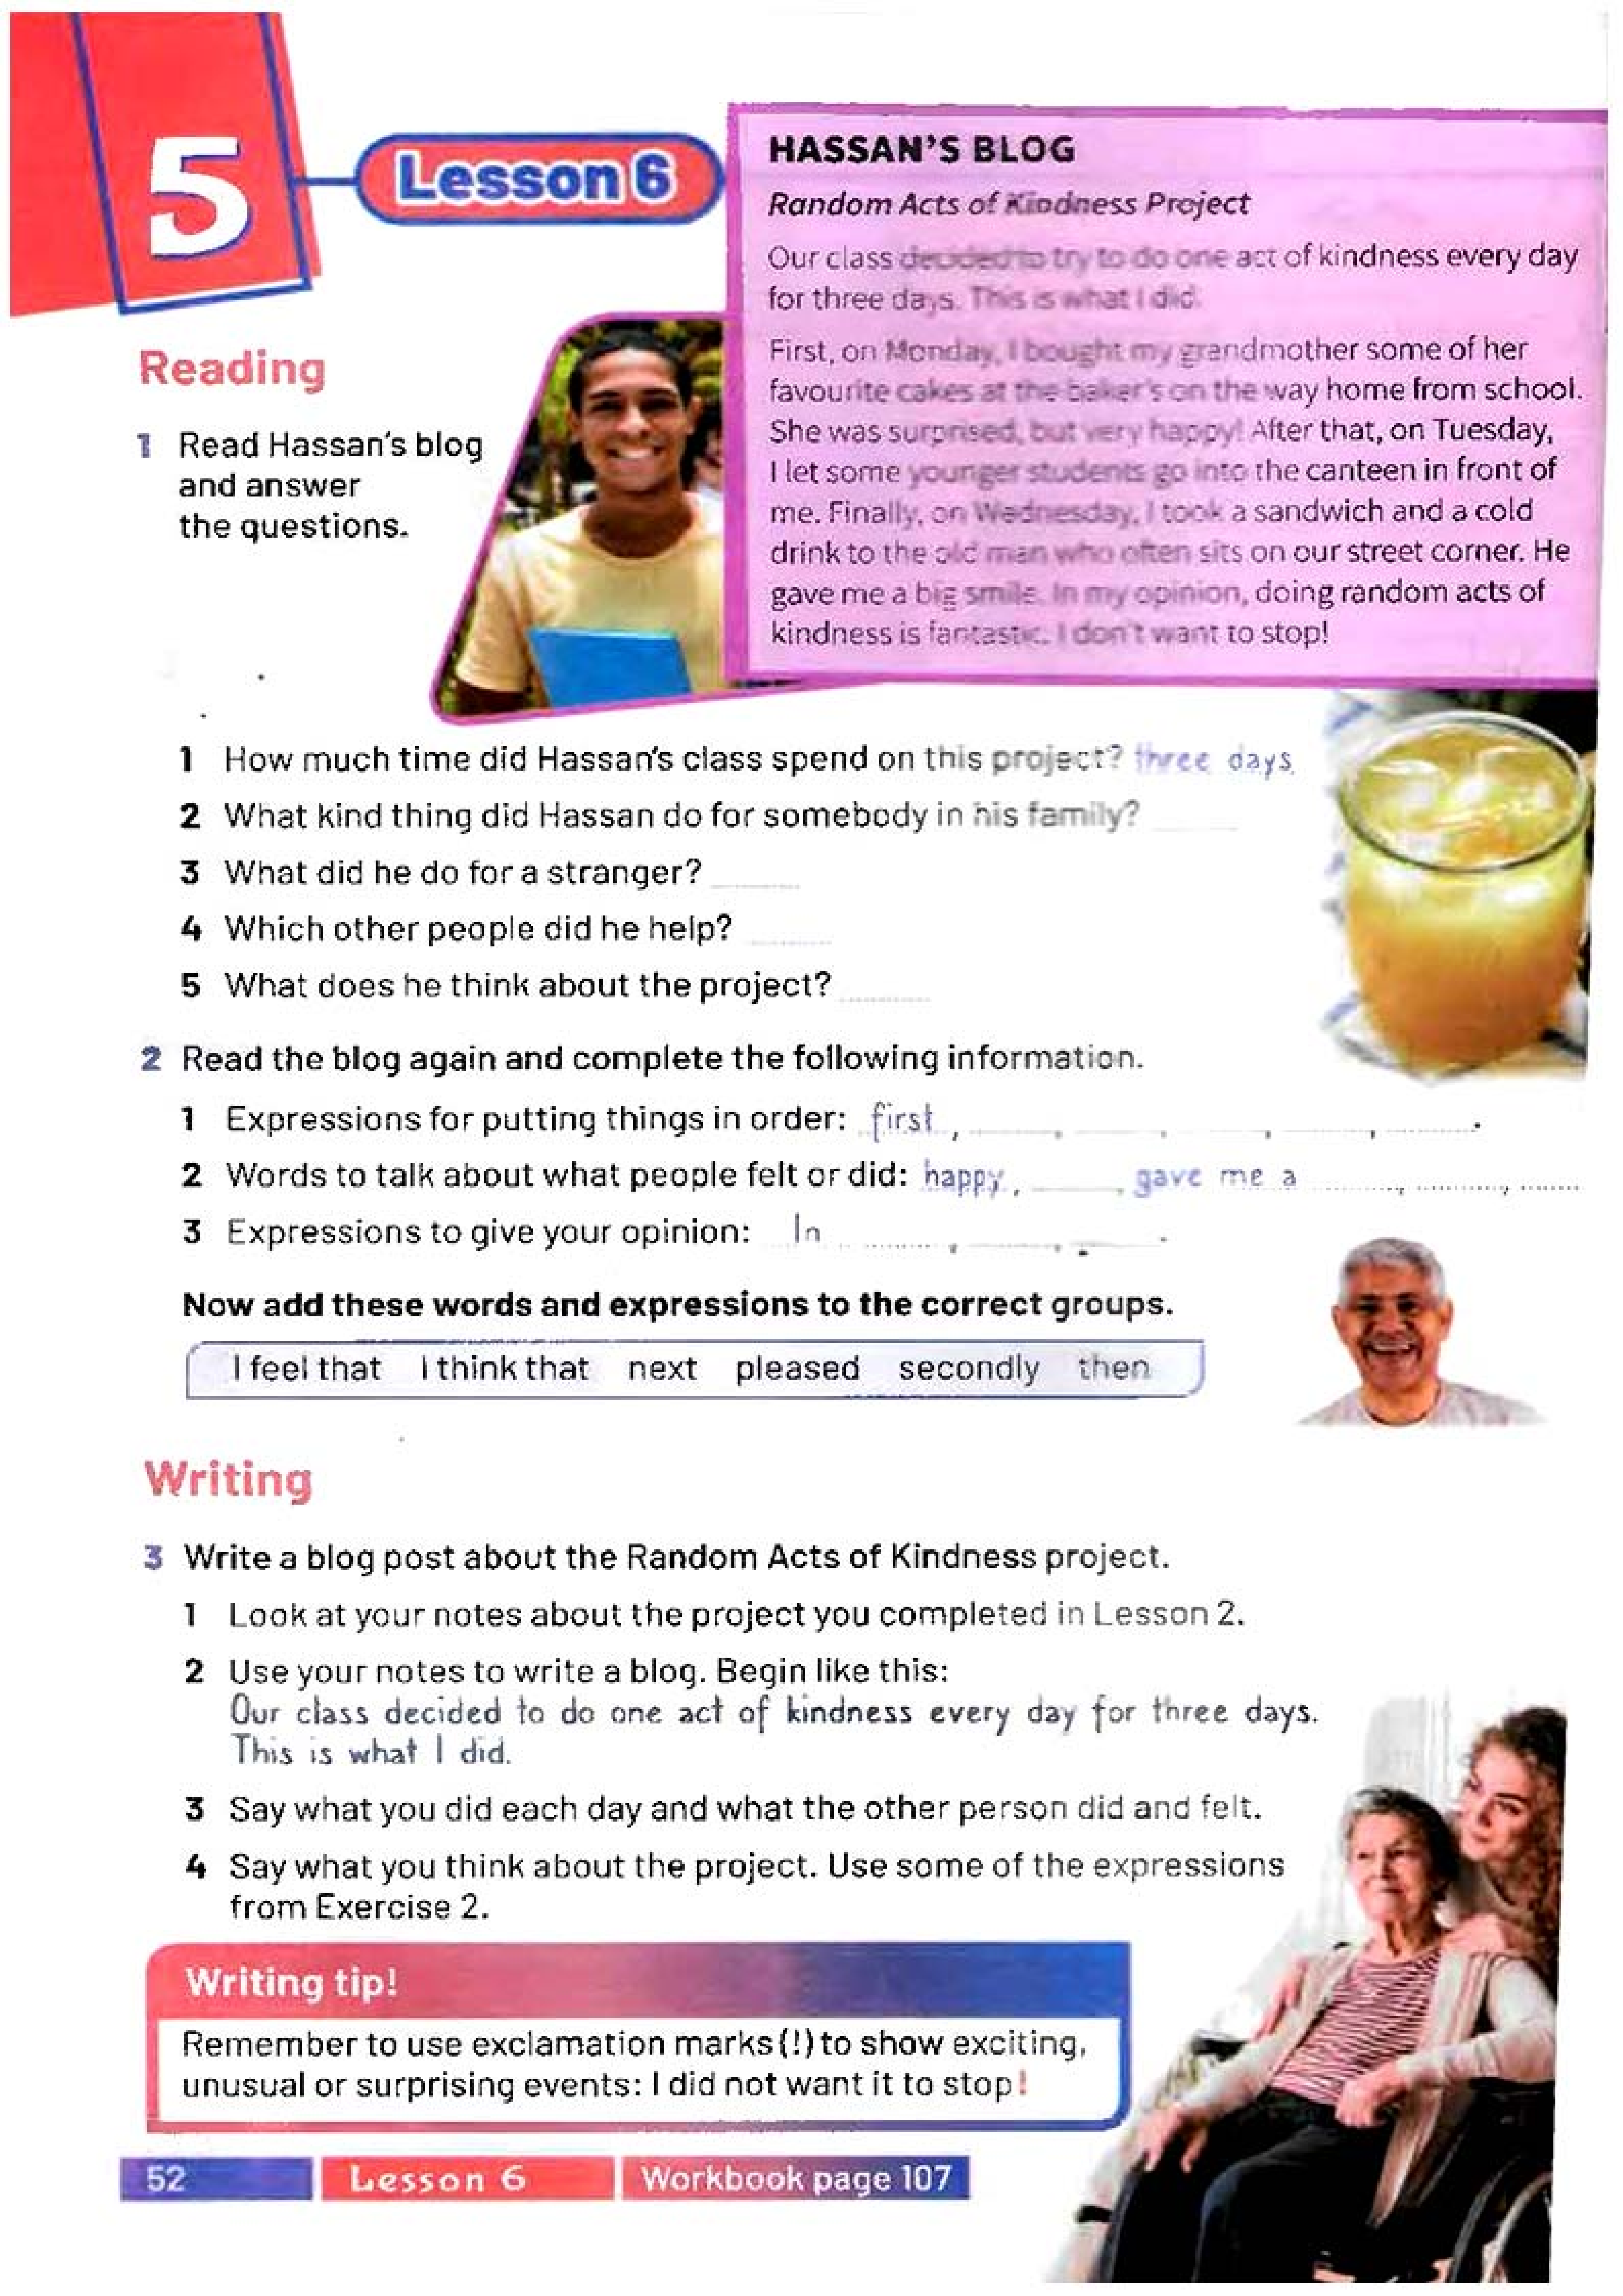 5
Lesson 6
HASSAN'S BLOG
Random Acts of Kindness Project
Our class decided to try to do one act of kindness every day
for three days. This is what I did.
First, on Monday, I bought my grandmother some of her
favourite cakes at the baker's on the way home from school.
She was surprised, but very happy! After that, on Tuesday,
I let some younger students go into the canteen in front of
me. Finally, on Wednesday, I took a sandwich and a cold
drink to the old man who often sits on our street corner. He
gave me a big smile. In my opinion, doing random acts of
kindness is fantastic. I don't want to stop!
Reading
1 Read Hassan's blog
and answer
the questions.
1 How much time did Hassan's class spend on this project? three days
2 What kind thing did Hassan do for somebody in his family?
3 What did he do for a stranger?
4 Which other people did he help?
5 What does he think about the project?
2 Read the blog again and complete the following information.
1 Expressions for putting things in order: first, , , , , .
2 Words to talk about what people felt or did: happy, , gave me a , ,
3 Expressions to give your opinion: In , , .
Now add these words and expressions to the correct groups.
I feel that I think that next pleased secondly then
Writing
3 Write a blog post about the Random Acts of Kindness project.
1 Look at your notes about the project you completed in Lesson 2.
2 Use your notes to write a blog. Begin like this:
Our class decided to do one act of kindness every day for three days.
This is what I did.
3 Say what you did each day and what the other person did and felt.
4 Say what you think about the project. Use some of the expressions
from Exercise 2.
Writing tip!
Remember to use exclamation marks (!) to show exciting,
unusual or surprising events: I did not want it to stop!
52 Lesson 6 Workbook page 107